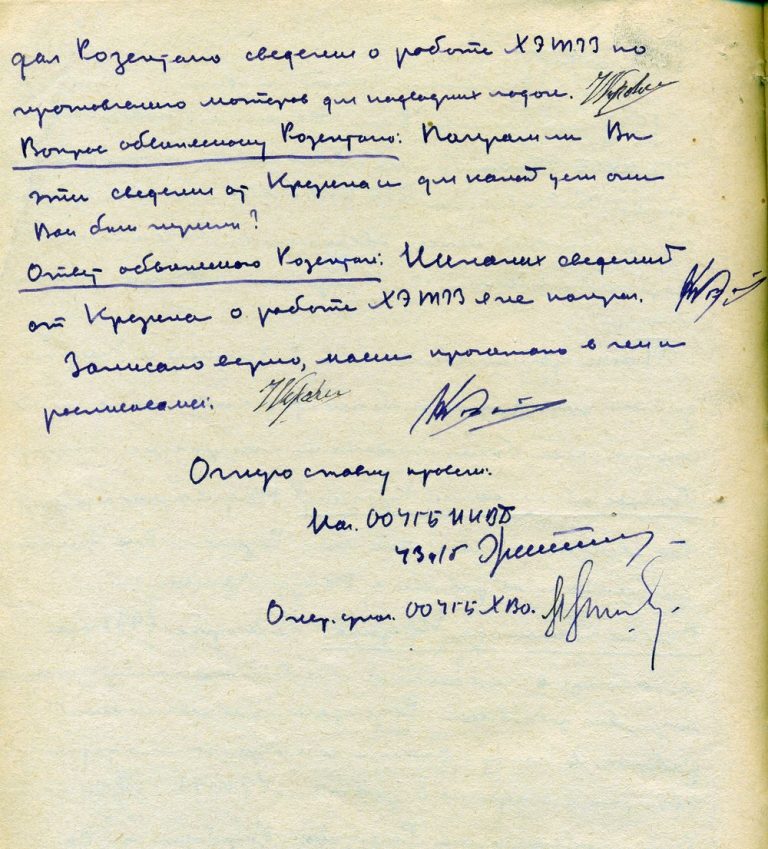 дал Розенталю сведения о работе ХЭТЗ по
изготовлению моторов для подводных лодок.
Вопрос обвиняемому Розенталю: Получали ли Вы
эти сведения от и для какой цели они
Вам были нужны?
Ответ обвиняемого Розенталь: Никаких сведений
от о работе ХЭТЗ я не получал.
Записано верно, нами прочитано в чем и
расписываемся:
Очную ставку провели:
Нач. ОО УГБ НКВД
ОО УГБ ХВО.